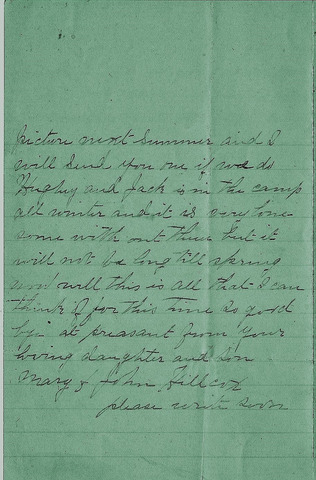 picture next Summer and I
will Send you one if we do
Hughy and Jack is in the camp
all winter and it is very lone
some with out them but it
will not be long till spring
now well this is all that I can
think of for this time so good
by at preasant from your
loving daughter and Son
Mary & John
please write soon